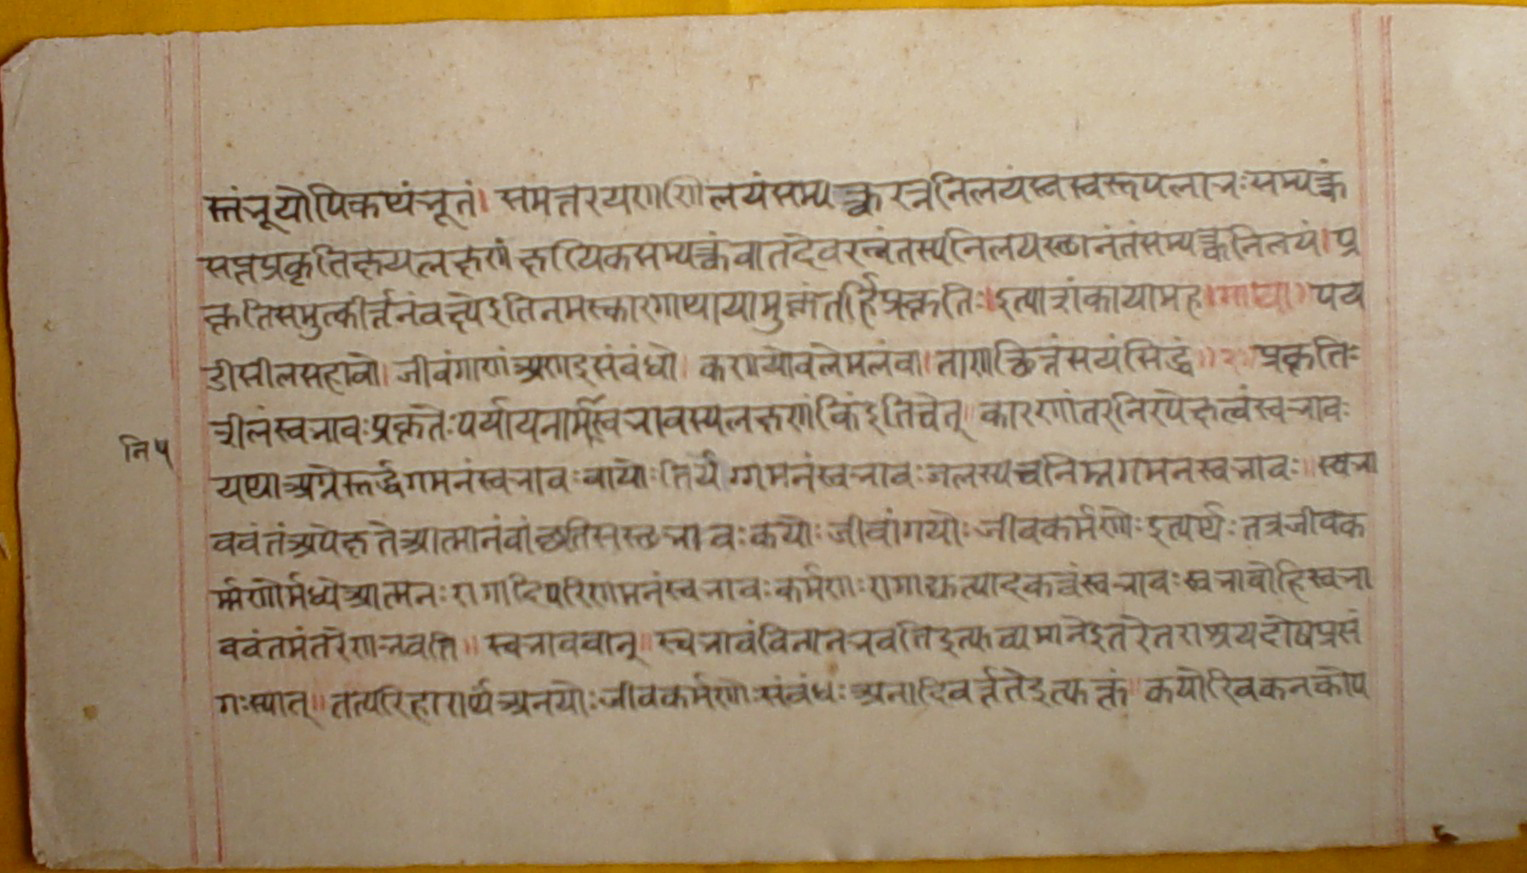 स्तंभूयोपिकथंभूतं। समत्तरयणणिलयंसम्यक्त्वरत्ननिलयंस्वस्वरूपलाभःसम्यक्त्वं
सप्तप्रकृतिक्षयलक्षणं क्षायिकसम्यक्त्वंवातदेवरत्नंतस्यनिलयस्थानंतंसम्यक्त्वनिलयं।प्र
कृतिसमुत्कीर्त्तनंवक्ष्येइतिनमस्कारगाथायामुक्तंतर्हिप्रकृतिः॥इत्याशंकायामाह॥गाथा॥पय
डीसीलसहावो। जीवंगाणंअणाइसंबंधो। कणयोवलेमलंवा।ताणत्थित्तंसयंसिद्धं॥२॥प्रकृतिः
शीलंस्वभावःप्रकृतेःपर्यायनामस्वभावस्यलक्षणंकिंइतिचेत् कारणांतरनिरपेक्षत्वंस्वभावः
नि५
यथाअग्नेरूर्द्धगमनंस्वभावःवायोःतिर्यग्गमनंस्वभावःजलस्यचनिम्नगमनस्वभावः॥स्वभा
ववंतंअपेक्षतेआत्मानंवांछतिसस्वभावःकयोःजीवांगयोःजीवकर्मणोःइत्यर्थःतत्रजीवक
र्म्मणोर्मध्येआत्मनःरागादिपरिणमनंस्वभावःकर्मणःरागाद्युत्पादकत्वंस्वभावःस्वभावोहिस्वभा
ववंतमंतरेणनभवति॥स्वभाववान्॥स्वभावंविनानभवतिइत्युच्यमानेइतरेतराश्रयदोषप्रसं
गःस्यात्॥तत्परिहारार्थंअनयोःजीवकर्मणोःसंबंधःअनादिवर्त्ततेइत्युक्तं॥कयोरिवकनकोप